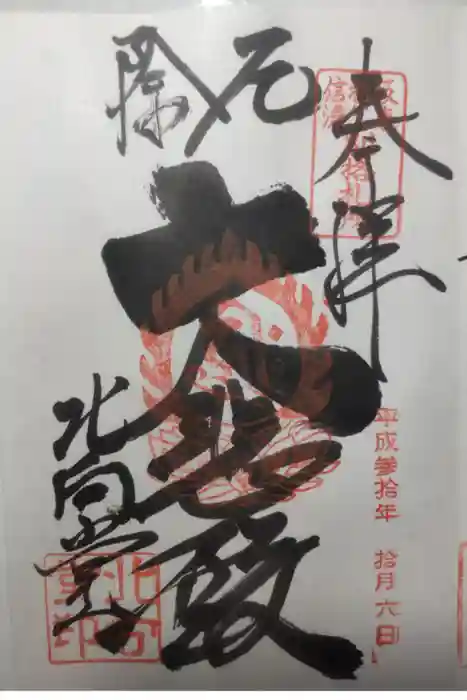 奉拝
平成参拾年 拾月六日
厄除
大悲殿
北向堂